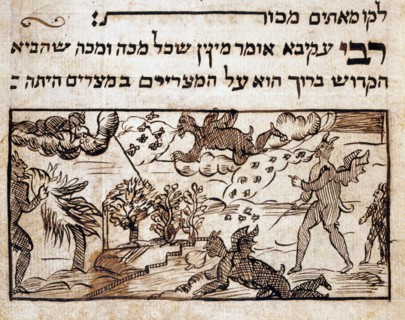 לקו מאתים מכות :
רבי עקיבא אומר מינין שכל מכה ומכה שהביא
הקדוש ברוך הוא על המצריים במצרים היתה